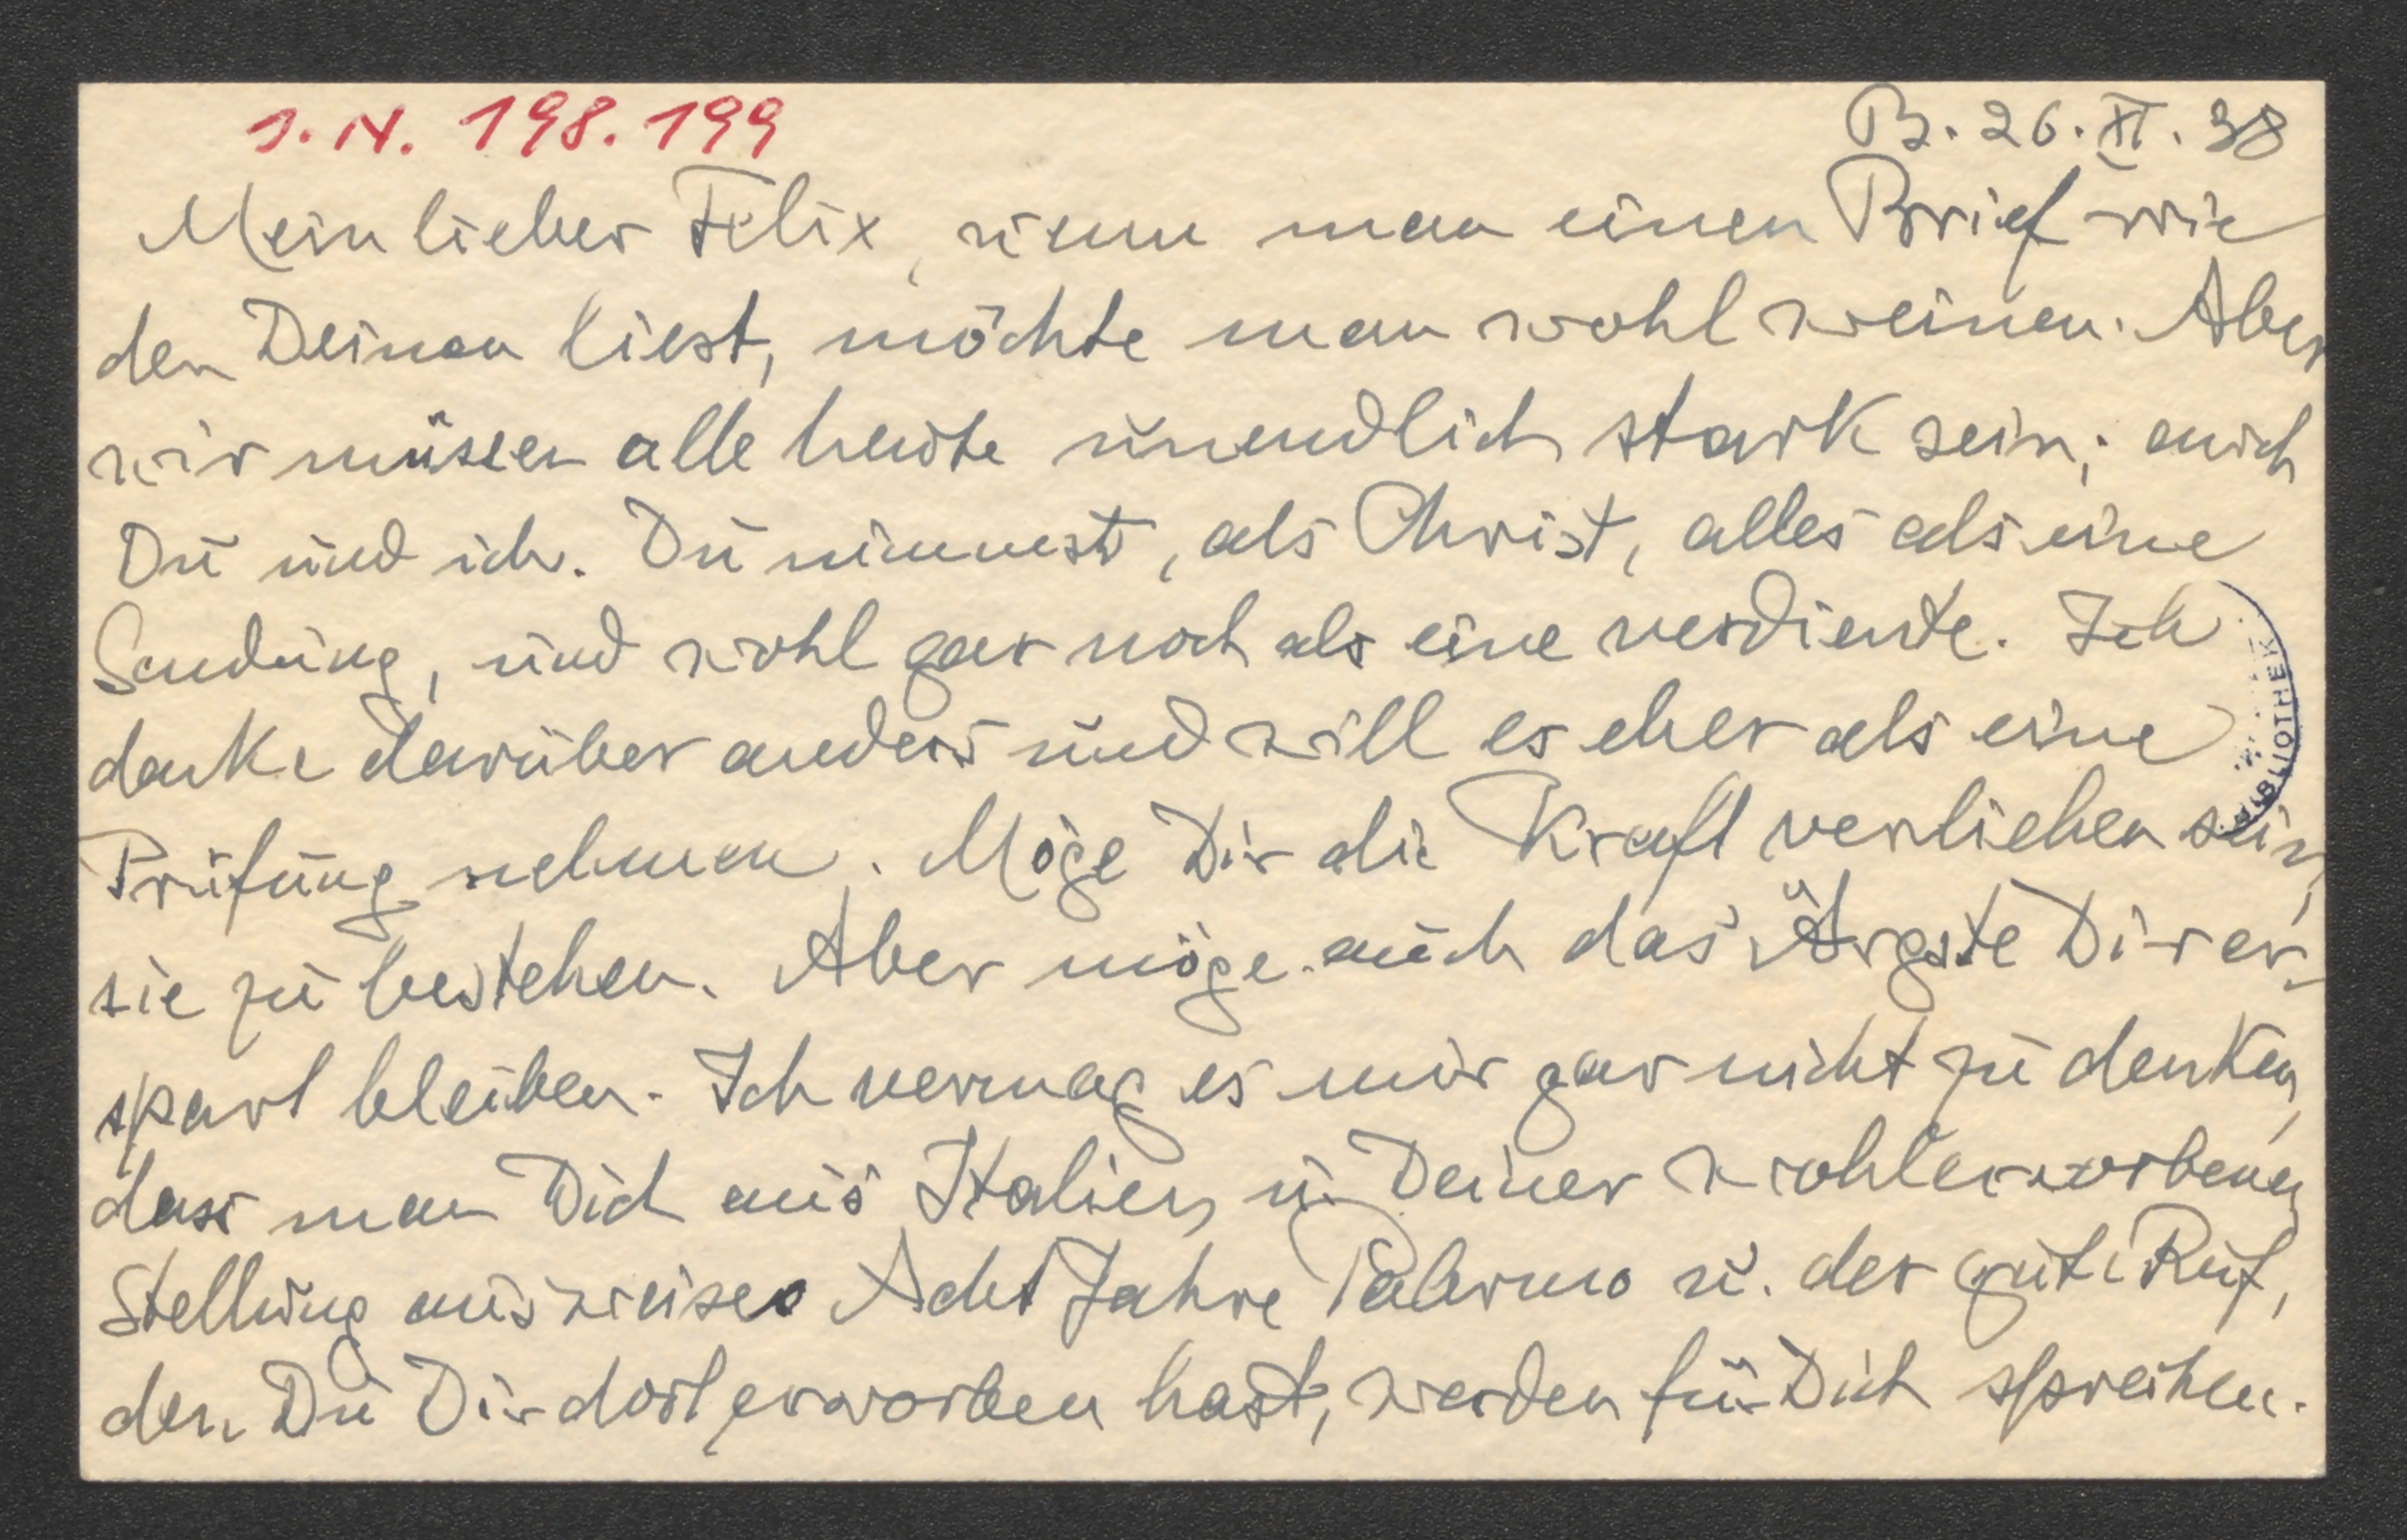 J.N. 198.199
B. 26. XI. 38
Mein lieber Felix, wenn man einen Brief wie
den Deinen liest, möchte man wohl weinen. Aber
wir müssen alle heute unendlich stark sein; auch
Du und ich. Du nimmst, als Christ, alles als eine
Sendung, und wohl gar noch als eine verdiente. Ich
denke darüber anders und will es eher als eine
Prüfung nehmen. Möge Dir die Kraft verliehen sein,
sie zu bestehen. Aber möge auch das Ärgste Dir er-
spart bleiben. Ich vermag es mir gar nicht zu denken,
dass man Dich aus Italien u. Deiner wohlerworbenen
Stellung ausweise. Acht Jahre Palermo u. der gute Ruf,
den Du Dir dort erworben hast, werden für Dich sprechen.
BIBLIOTHEK